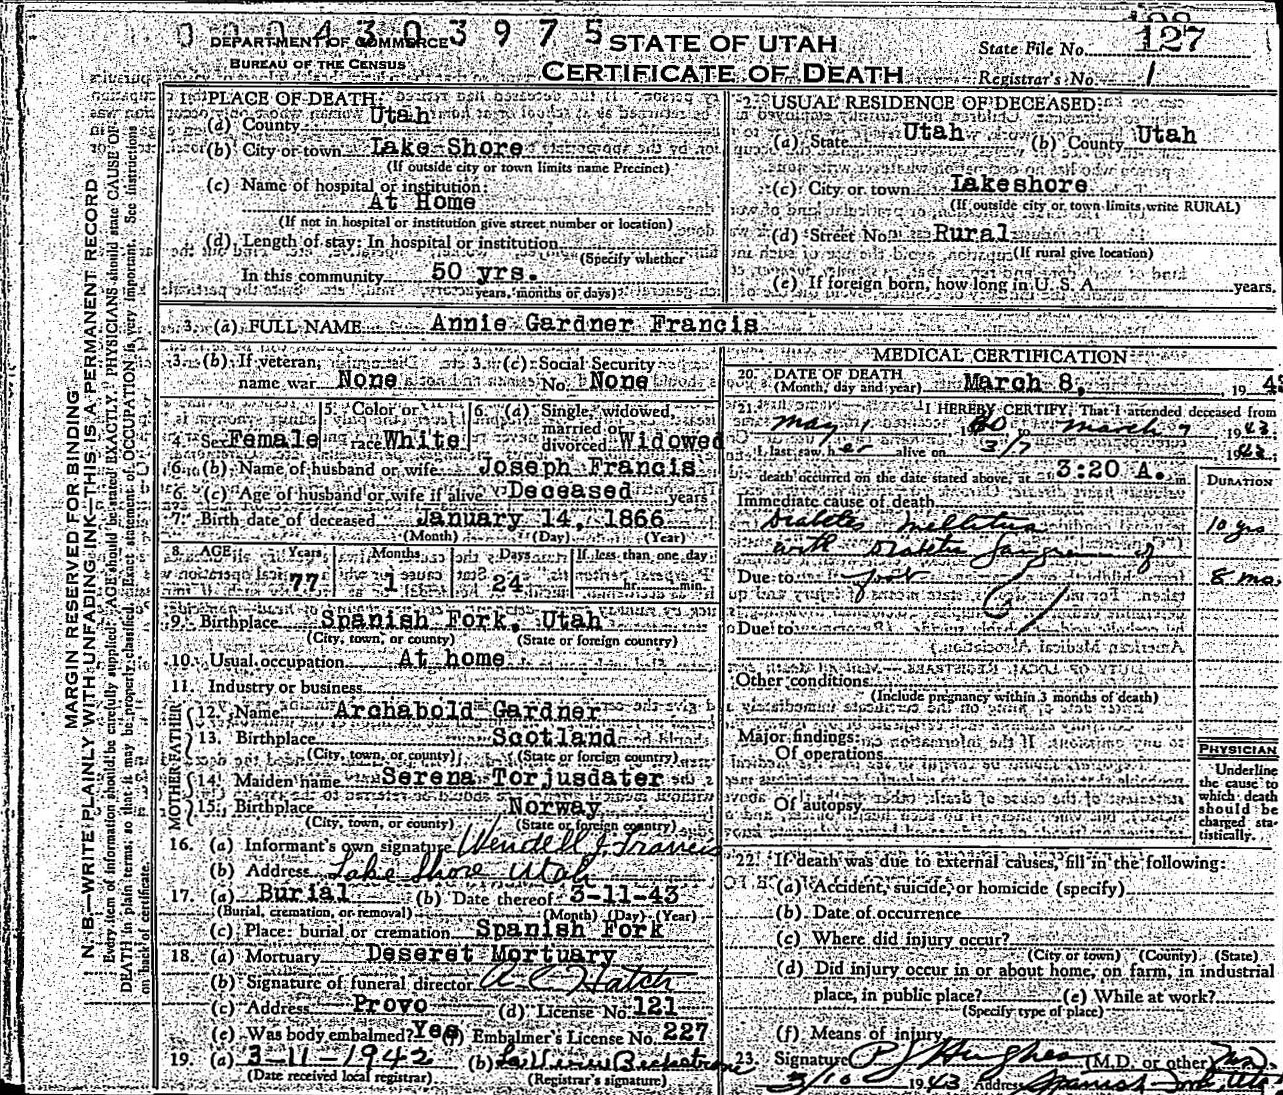 0 0 0 4 3 0 3 9 7 5
DEPARTMENT OF COMMERCE
BUREAU OF THE CENSUS
STATE OF UTAH
CERTIFICATE OF DEATH
State File No. 127
Registrar's No. 1
MARGIN RESERVED FOR BINDING
N. B.—WRITE PLAINLY WITH UNFADING INK—THIS IS A PERMANENT RECORD
Every item of information should be carefully supplied. AGE should be stated EXACTLY. PHYSICIANS should state CAUSE OF
DEATH in plain terms, so that it may be properly classified. Exact statement of OCCUPATION is very important. See instructions
on back of certificate.
1. PLACE OF DEATH:
(a) County Utah
(b) City or town Lake Shore
(If outside city or town limits name Precinct)
(c) Name of hospital or institution:
At Home
(If not in hospital or institution give street number or location)
(d) Length of stay: In hospital or institution
(Specify whether
In this community 50 yrs.
years, months or days)
2. USUAL RESIDENCE OF DECEASED:
(a) State Utah (b) County Utah
(c) City or town Lakeshore
(If outside city or town limits write RURAL)
(d) Street No. Rural
(If rural give location)
(e) If foreign born, how long in U. S. A. years.
3. (a) FULL NAME Annie Gardner Francis
3. (b) If veteran, name war None
3. (c) Social Security No. None
4. Sex Female
5. Color or race White
6. (a) Single, widowed, married or divorced Widowed
6. (b) Name of husband or wife Joseph Francis
6. (c) Age of husband or wife if alive Deceased years
7. Birth date of deceased January 14, 1866
(Month) (Day) (Year)
8. AGE Years Months Days If less than one day
77 1 24 hr. min.
9. Birthplace Spanish Fork, Utah
(City, town, or county) (State or foreign country)
10. Usual occupation At home
11. Industry or business
FATHER
12. Name Archabold Gardner
13. Birthplace Scotland
(City, town, or county) (State or foreign country)
MOTHER
14. Maiden name Serena Torjusdater
15. Birthplace Norway
(City, town, or county) (State or foreign country)
16. (a) Informant's own signature Wendell J. Francis
(b) Address Lake Shore Utah
17. (a) Burial (b) Date thereof 3-11-43
(Burial, cremation, or removal) (Month) (Day) (Year)
(c) Place: burial or cremation Spanish Fork
18. (a) Mortuary Deseret Mortuary
(b) Signature of funeral director A. C. Hatch
(c) Address Provo (d) License No. 121
(e) Was body embalmed? Yes (f) Embalmer's License No. 227
19. (a) 3-11-1942 (b)
(Date received local registrar) (Registrar's signature)
MEDICAL CERTIFICATION
20. DATE OF DEATH
(Month, day and year) March 8, 19 43
21. I HEREBY CERTIFY, That I attended deceased from
May 1 to March 7 1943.
I last saw her alive on 3/7 1943.
death occurred on the date stated above, at 3:20 A. m.
DURATION
Immediate cause of death
Diabetes Mellitus 10 yrs
with Diabetic Gangrene of
Due to foot 8 mo.
Due to
Other conditions
(Include pregnancy within 3 months of death)
Major findings:
Of operations
Of autopsy
PHYSICIAN
Underline
the cause to
which death
should be
charged sta-
tistically.
22. If death was due to external causes, fill in the following:
(a) Accident, suicide, or homicide (specify)
(b) Date of occurrence
(c) Where did injury occur?
(City or town) (County) (State)
(d) Did injury occur in or about home, on farm, in industrial
place, in public place? (e) While at work?
(Specify type of place)
(f) Means of injury
23. Signature P J Hughes (M.D. or other) M.D.
3/10 1943 Address Spanish Fork, Utah